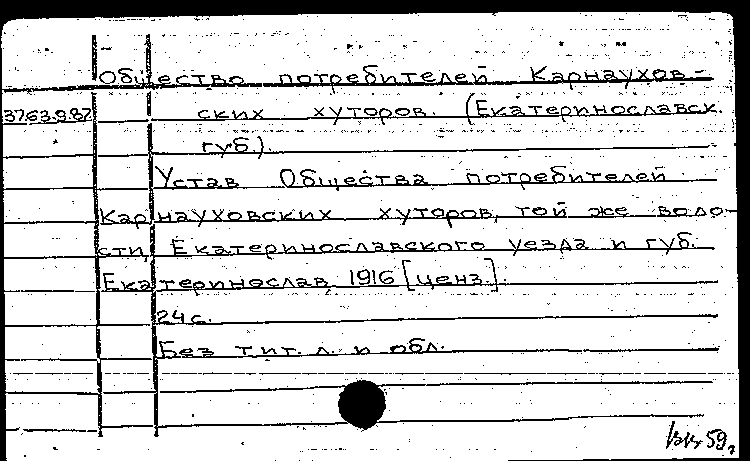 Общество потребителей Карнаухов-
3763.9.82 ских хуторов. (Екатеринославск.
губ.).
Устав Общества потребителей
Карнауховских хуторов, той же воло-
сти, Екатеринославского уезда и губ.
Екатеринослав, 1916 [ценз.].
24 с.
Без тит. л. и обл.
59